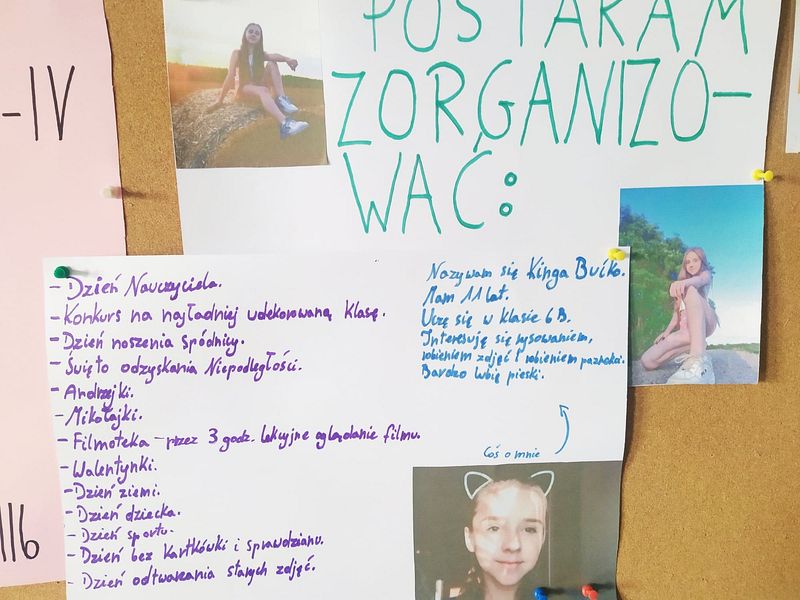 -IV
POSTARAM
ZORGANIZO-
WAĆ:
- Dzień Nauczyciela.
- Konkurs na najładniej udekorowaną klasę.
- Dzień noszenia spódnicy.
- Święto odzyskania Niepodległości.
- Andrzejki.
- Mikołajki.
- Filmoteka - przez 3 godz. lekcyjne oglądanie filmu.
- Walentynki.
- Dzień ziemi.
- Dzień dziecka.
- Dzień sportu.
- Dzień bez kartkówki i sprawdzianu.
- Dzień odtwarzania starych zdjęć.
Nazywam się Kinga Bujko.
Mam 11 lat.
Uczę się w klasie 6B.
Interesuję się rysowaniem,
robieniem zdjęć i robieniem paznokci.
Bardzo lubię pieski.
Coś o mnie